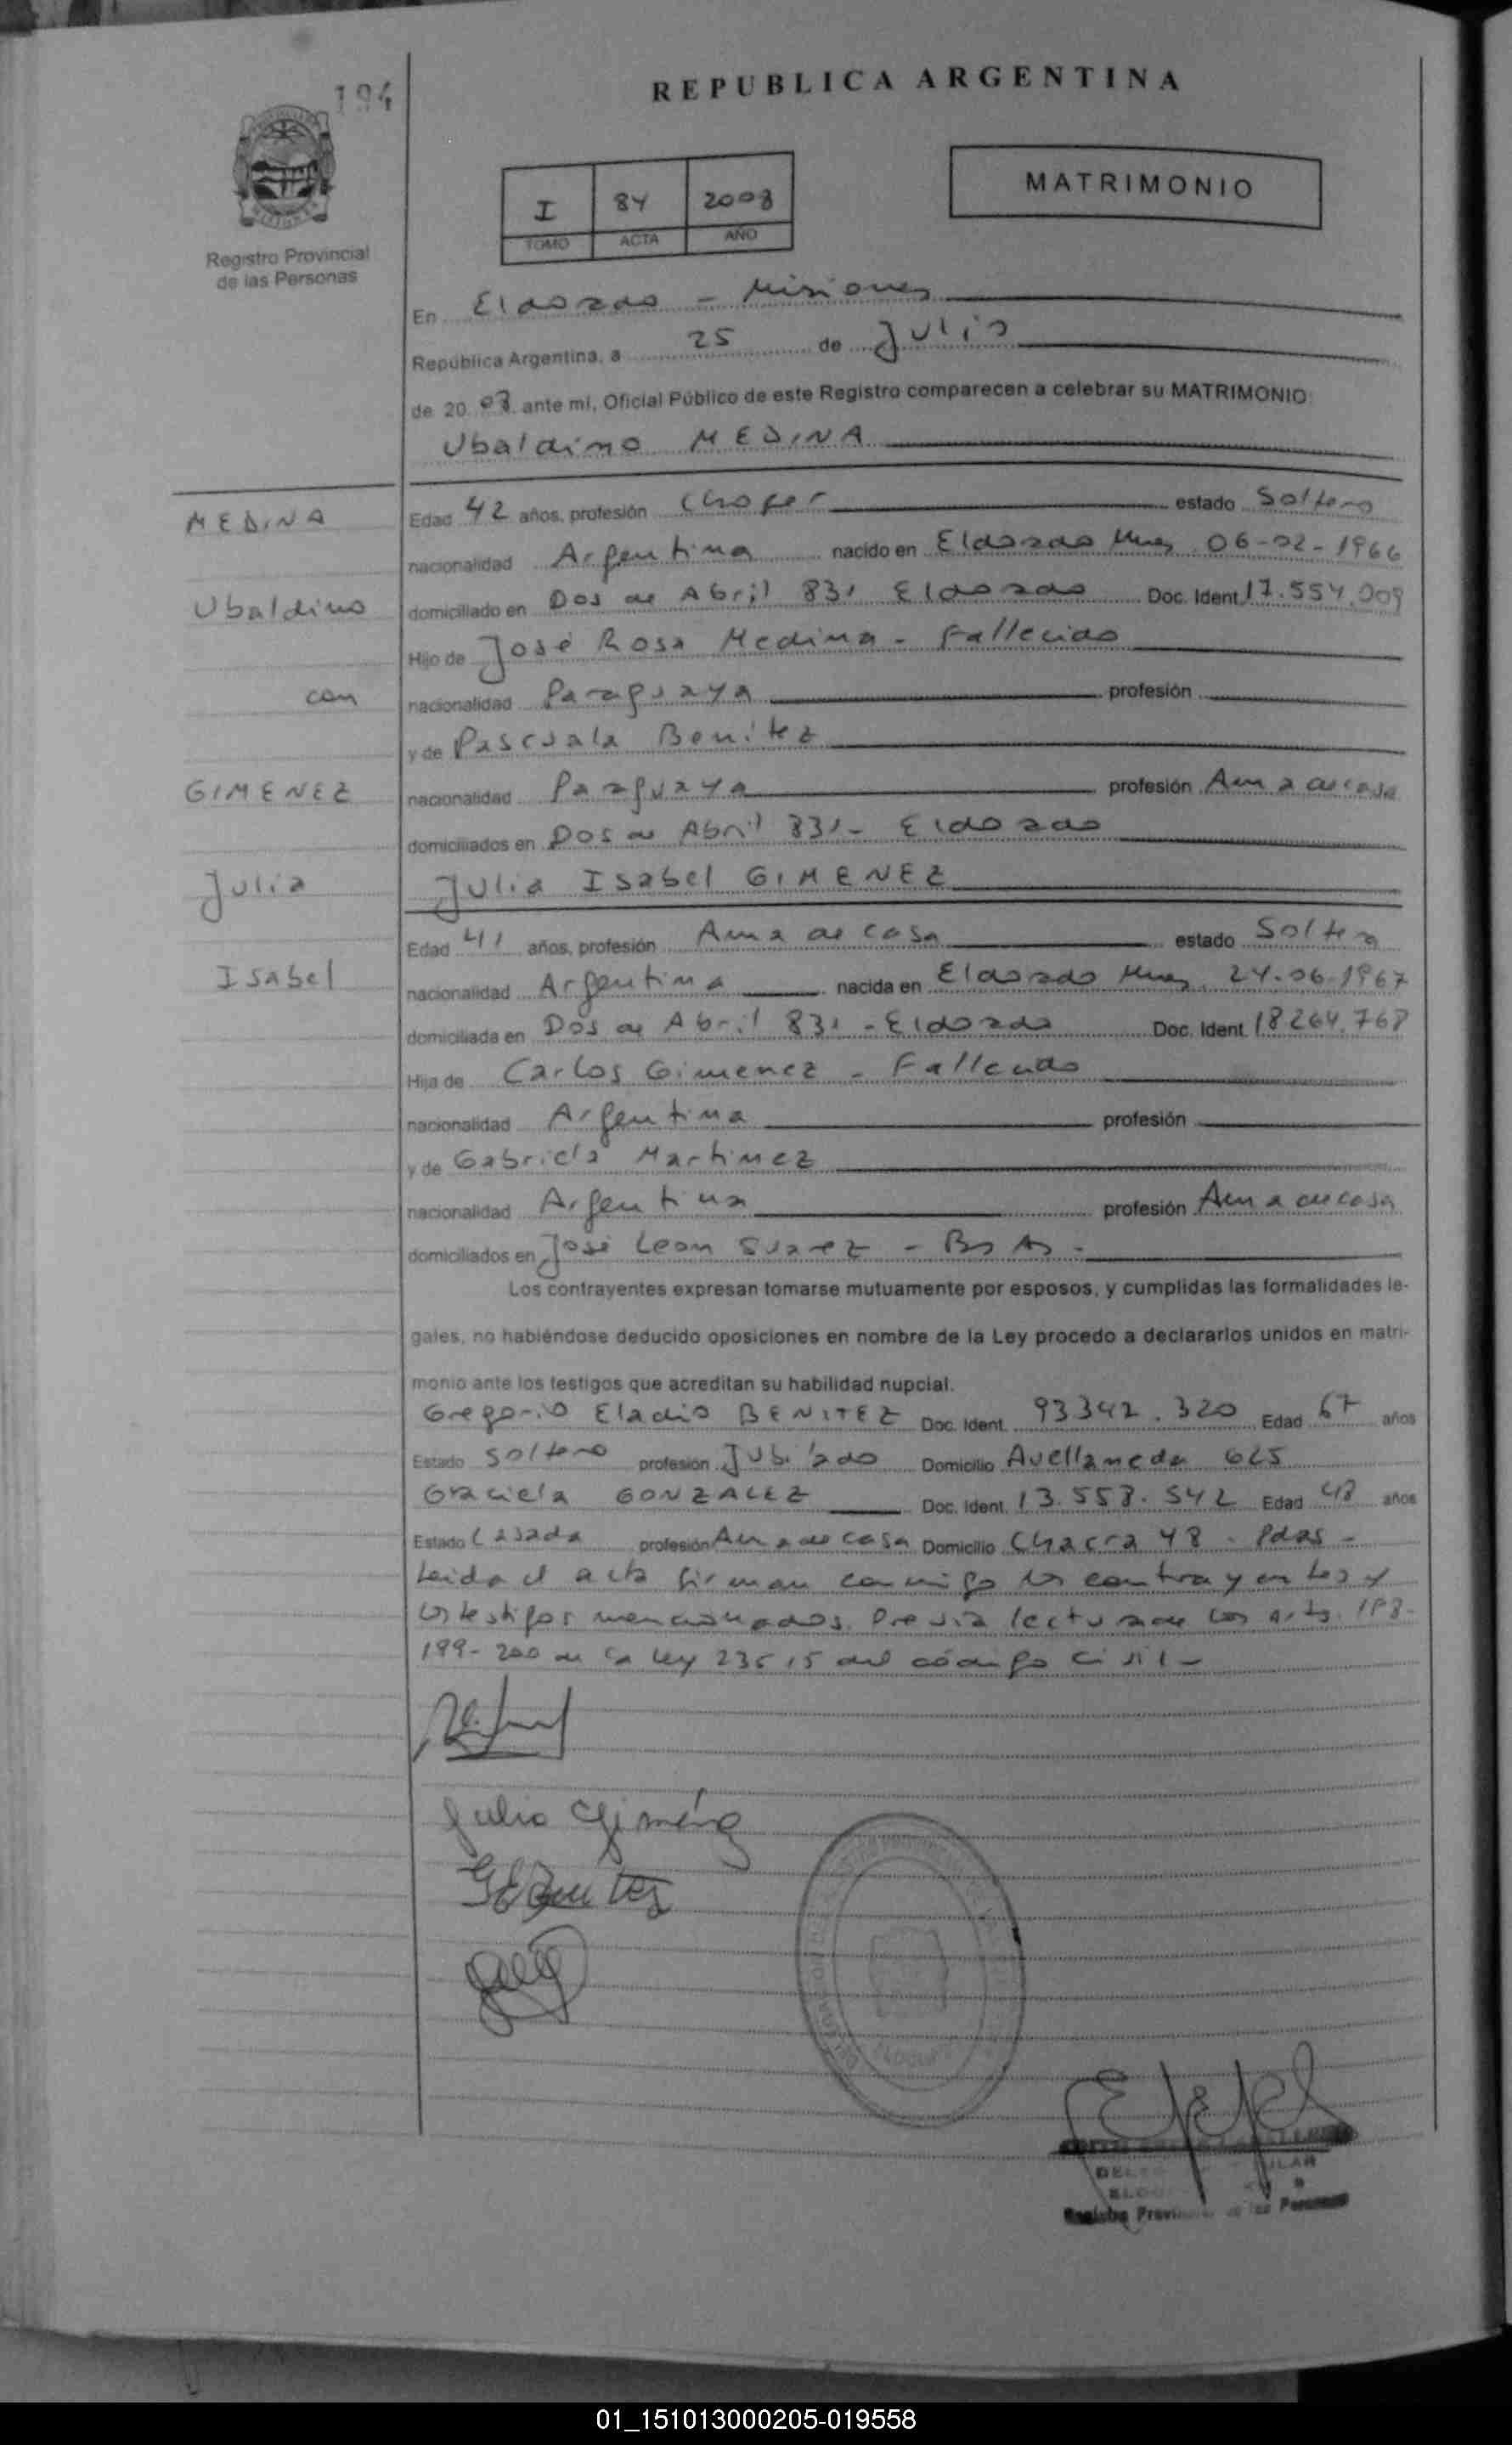 194
REPUBLICA ARGENTINA
MATRIMONIO
I 84 2008
TOMO ACTA AÑO
Registro Provincial
de las Personas
En Eldorado - Misiones
República Argentina, a 25 de Julio
de 20 08 ante mí, Oficial Público de este Registro comparecen a celebrar su MATRIMONIO:
Ubaldino MEDINA
MEDINA
Ubaldino
con
GIMENEZ
Julia
Isabel
Edad 42 años, profesión Chofer estado Soltero
nacionalidad Argentina nacido en Eldorado Mnes 06-02-1966
domiciliado en Dos de Abril 831 Eldorado Doc. Ident. 17.554.009
Hijo de José Rosa Medina - Fallecido
nacionalidad Paraguaya profesión
y de Pascuala Benitez
nacionalidad Paraguaya profesión Ama de casa
domiciliados en Dos de Abril 831 - Eldorado
Julia Isabel GIMENEZ
Edad 41 años, profesión Ama de casa estado Soltera
nacionalidad Argentina nacida en Eldorado Mnes 24-06-1967
domiciliada en Dos de Abril 831 - Eldorado Doc. Ident. 18264.768
Hija de Carlos Gimenez - Fallecido
nacionalidad Argentina profesión
y de Gabriela Martinez
nacionalidad Argentina profesión Ama de casa
domiciliados en José Leon Suarez - Bs As -
Los contrayentes expresan tomarse mutuamente por esposos, y cumplidas las formalidades le-
gales, no habiéndose deducido oposiciones en nombre de la Ley procedo a declararlos unidos en matri-
monio ante los testigos que acreditan su habilidad nupcial.
Gregorio Eladio BENITEZ Doc. Ident. 93342.320 Edad 67 años
Estado Soltero profesión Jubilado Domicilio Avellaneda 625
Graciela GONZALEZ Doc. Ident. 13.558.542 Edad 48 años
Estado Casada profesión Ama de casa Domicilio Chacra 48 - Pdas -
Leida el acta firman conmigo los contrayentes y
los testigos mencionados. Previa lectura de los arts. 198-
199-200 de la ley 23515 del código civil -
Julia Gimenez
GEBenitez
Registro Provincial de las Personas
01_151013000205-019558